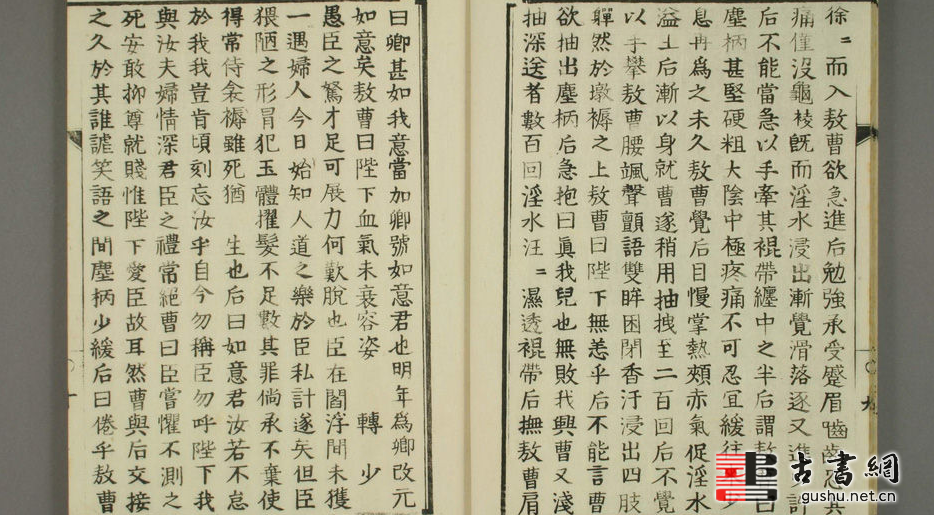 徐〻而入敖曹欲急進后勉強承受蹙眉嚙齒忍其
痛僅沒龜棱旣而淫水浸出漸覺滑落逐又進許
后不能當急以手牽其裩帶纏中之半后謂敖曰
塵柄甚堅硬粗大陰中極疼痛不可忍宜緩往少
息再爲之未久敖曹覺后目慢掌熱頰赤氣促淫水
溢土后漸以身就曹遂稍用抽拽至二百回后不覺
以手攀敖曹腰颯聲顫語雙眸困閉香汗浸出四肢
軃然於墩褥之上敖曹曰陛下無恙乎后不能言曹
欲抽出塵柄后急抱曰眞我兒也無敗我興曹又淺
抽深送者數百回淫水汪〻濕透裩帶后撫敖曹肩
曰卿甚如我意當加卿號如意君也明年爲卿改元
如意矣敖曹曰陛下血氣未衰容姿 轉 少
愚臣之駑才足可展力何歎脫也臣在閻浮間未獲
一遇婦人今日始知人道之樂於臣私計遂矣但臣
猥陋之形冒犯玉體擢髮不足數其罪倘承不棄使
得常侍衾褥雖死猶 生也后曰如意君汝若不忘
於我我豈肯頃刻忘汝乎自今勿稱臣勿呼陛下我
與汝夫婦情深君臣之禮常絕曹曰臣嘗懼不測之
死安敢抑尊就賤惟陛下愛臣故耳然曹與后交接
之久於其誰謔笑語之間塵柄少緩后曰倦乎敖曹
九
古書網
gushu.net.cn